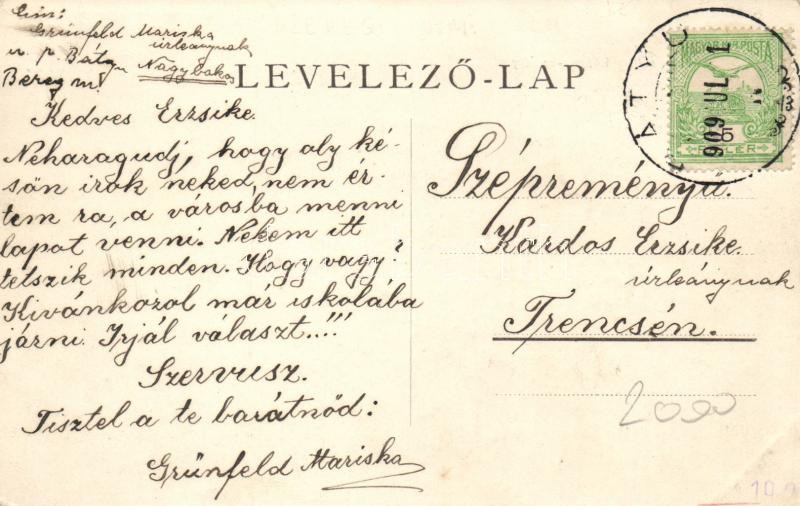 Cím:
Grünfeld Mariska
úrleánynak
u. p. Bátyu
Nagybakos
Bereg m.
LEVELEZŐ-LAP
Kedves Erzsike.
Neharagudj, hogy oly ké-
sön irok neked, nem ér-
tem ra, a városba menni
lapot venni. Nekem itt
tetszik minden. Hogy vagy?
Kivánkozol már iskolába
járni. Irjál választ..!!!
Szervusz.
Tisztel a te barátnöd:
Grünfeld Mariska
MAGYAR KIR. POSTA
5
FILLÉR
BÁTYU
909 JUL 1
Szépreményű.
Kardos Erzsike.
úrleánynak
Trencsén.
2000